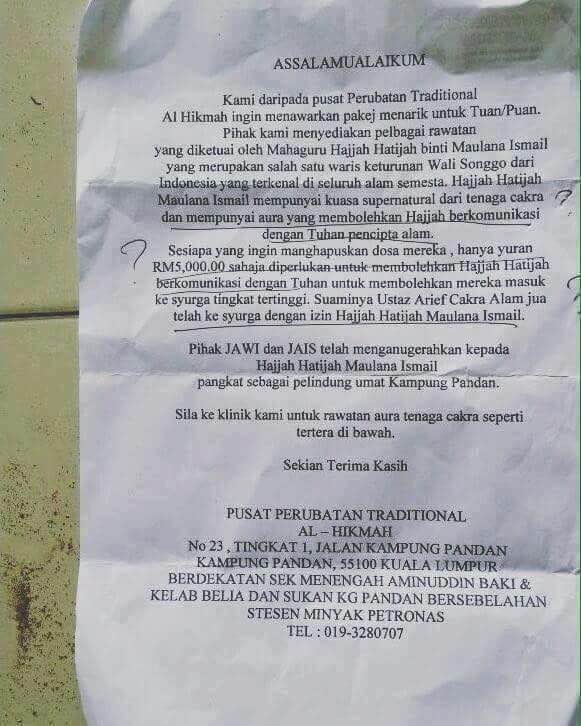 ASSALAMUALAIKUM
Kami daripada pusat Perubatan Traditional
Al Hikmah ingin menawarkan pakej menarik untuk Tuan/Puan.
Pihak kami menyediakan pelbagai rawatan
yang diketuai oleh Mahaguru Hajjah Hatijah binti Maulana Ismail
yang merupakan salah satu waris keturunan Wali Songgo dari
Indonesia yang terkenal di seluruh alam semesta. Hajjah Hatijah
Maulana Ismail mempunyai kuasa supernatural dari tenaga cakra ?
dan mempunyai aura yang membolehkan Hajjah berkomunikasi
dengan Tuhan pencipta alam.
? Sesiapa yang ingin manghapuskan dosa mereka , hanya yuran
RM5,000.00 sahaja diperlukan untuk membolehkan Hajjah Hatijah
berkomunikasi dengan Tuhan untuk membolehkan mereka masuk ?
ke syurga tingkat tertinggi. Suaminya Ustaz Arief Cakra Alam jua
telah ke syurga dengan izin Hajjah Hatijah Maulana Ismail.
Pihak JAWI dan JAIS telah menganugerahkan kepada
Hajjah Hatijah Maulana Ismail
pangkat sebagai pelindung umat Kampung Pandan.
Sila ke klinik kami untuk rawatan aura tenaga cakra seperti
tertera di bawah.
Sekian Terima Kasih
PUSAT PERUBATAN TRADITIONAL
AL – HIKMAH
No 23 , TINGKAT 1, JALAN KAMPUNG PANDAN
KAMPUNG PANDAN, 55100 KUALA LUMPUR
BERDEKATAN SEK MENENGAH AMINUDDIN BAKI &
KELAB BELIA DAN SUKAN KG PANDAN BERSEBELAHAN
STESEN MINYAK PETRONAS
TEL : 019-3280707